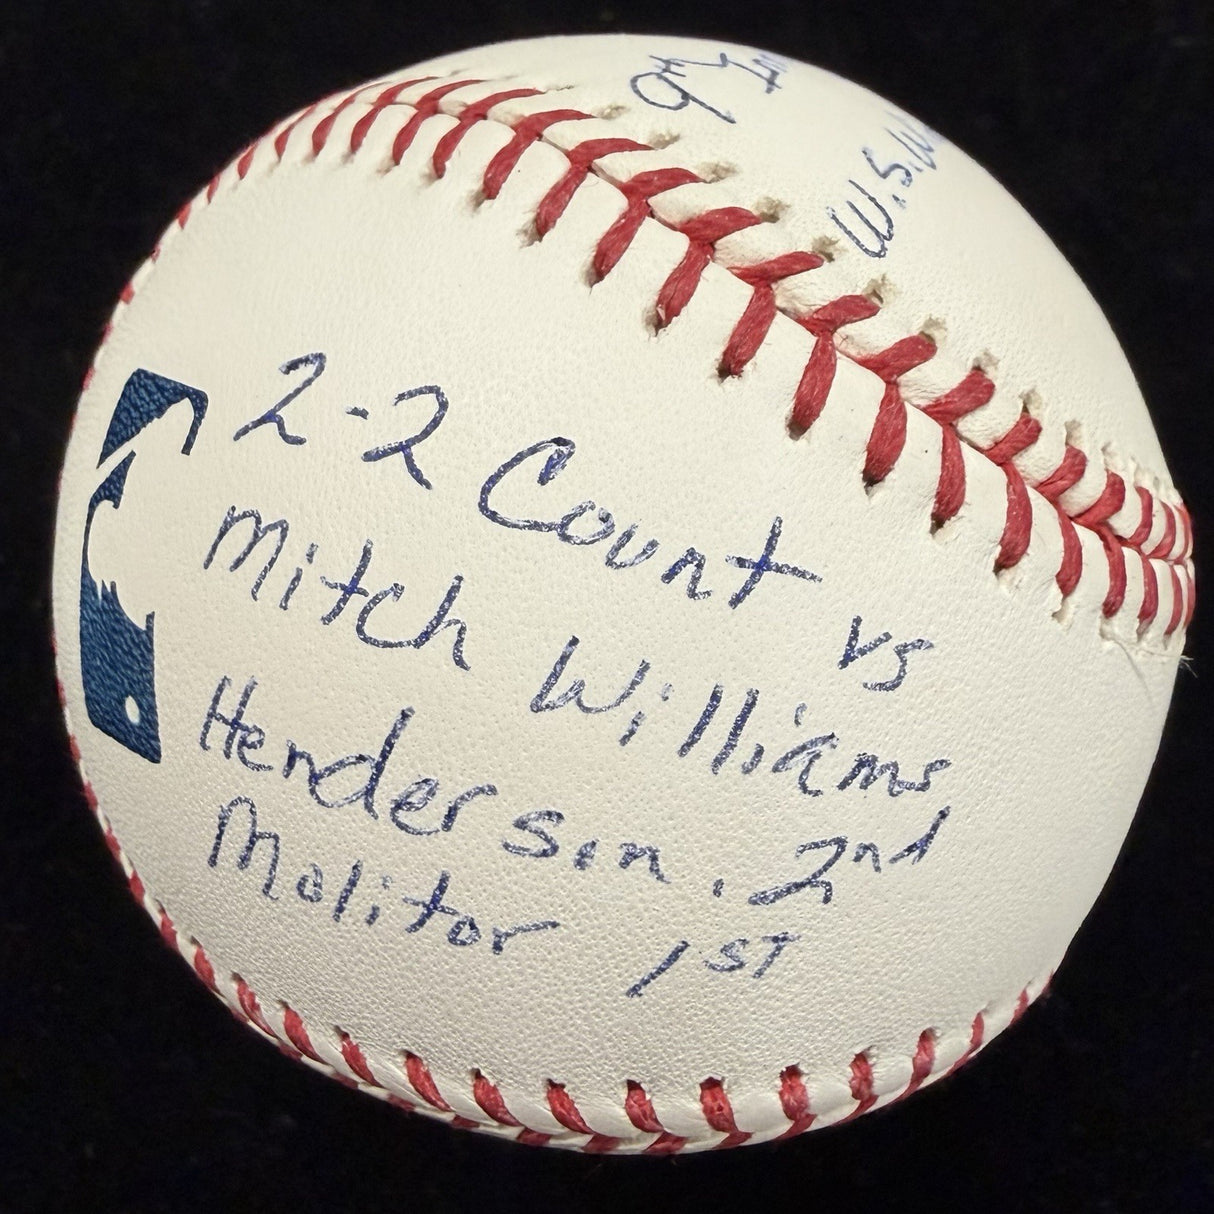 9th
W.S.
2-2 Count vs
Mitch Williams
Henderson. 2nd
Molitor 1ST